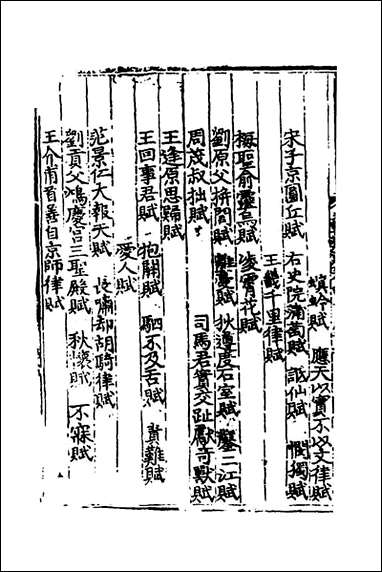 螟蛉賦 應天以實不以文律賦
宋子京圜丘賦 右史院蒲萄賦 詆仙賦 憫獨賦
王畿千里律賦
梅聖俞靈烏賦 凌霄花賦
劉原父栟櫚賦 離憂賦 狄遵度石室賦 鑿二江賦
周茂叔拙賦 司馬君實交趾獻奇獸賦
王逢原思歸賦
王回事君賦 抱關賦 駟不及舌賦 責難賦
愛人賦
范景仁大報天賦 長嘯却胡騎律賦
劉貢父鴻慶宮三聖殿賦 秋懷賦 不寐賦
王介甫首善自京師律賦